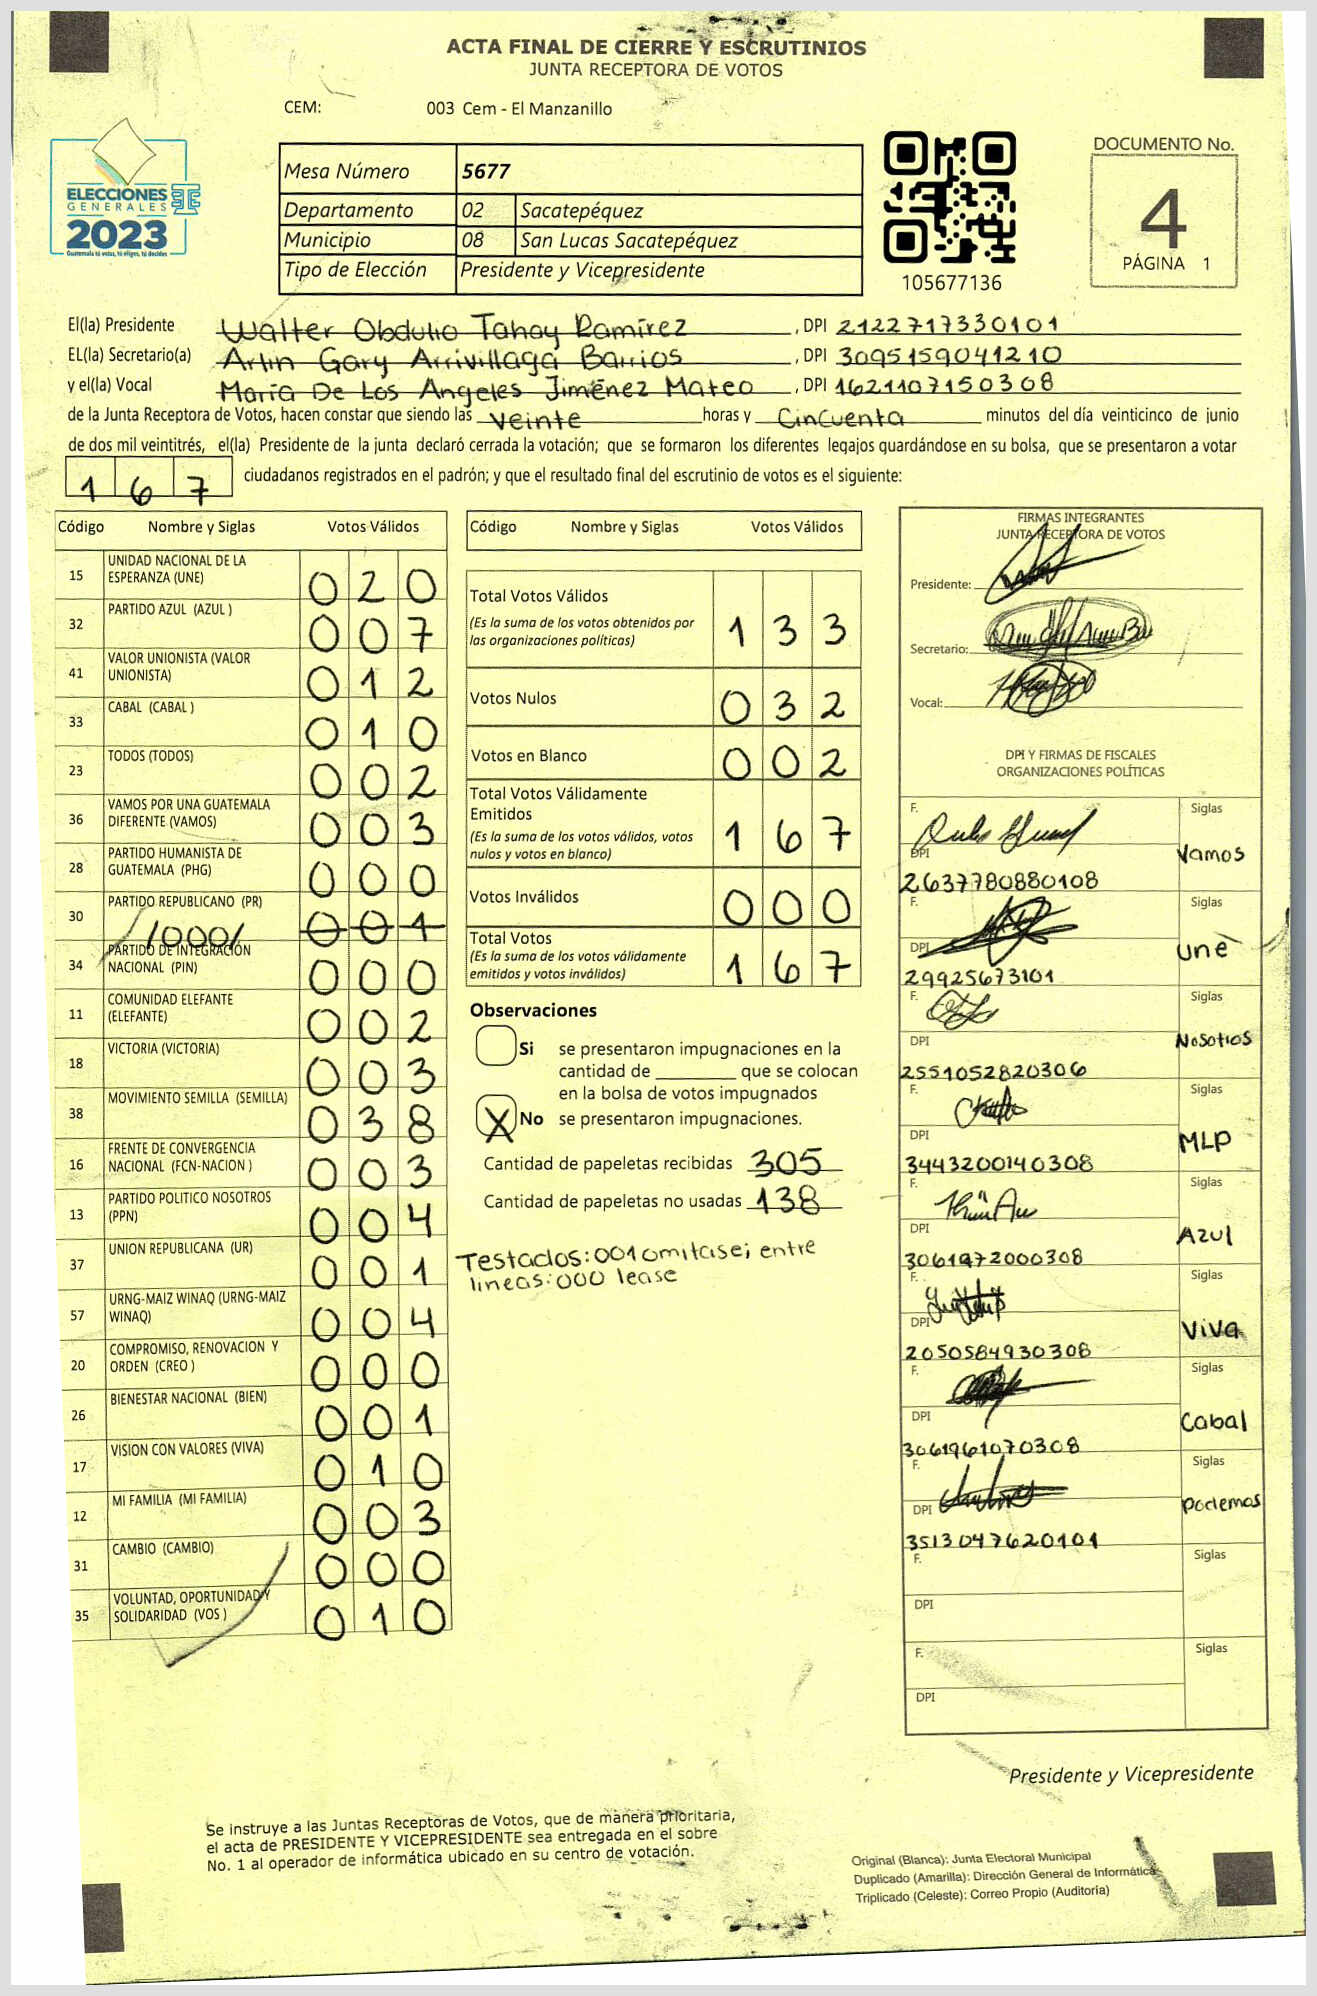 ACTA FINAL DE CIERRE Y ESCRUTINIOS
JUNTA RECEPTORA DE VOTOS
CEM: 003 Cem - El Manzanillo
ELECCIONES
GENERALES
2023
Guatemala tú votas, tú eliges, tú decides
Mesa Número 5677
Departamento 02 Sacatepéquez
Municipio 08 San Lucas Sacatepéquez
Tipo de Elección Presidente y Vicepresidente
105677136
DOCUMENTO No.
4
PÁGINA 1
El(la) Presidente Walter Obdulio Tahay Ramírez , DPI 2122717330101
EL(la) Secretario(a) Arlin Gary Arrivillaga Barrios , DPI 3095159041210
y el(la) Vocal María De Los Angeles Jiménez Mateo , DPI 1621107150308
de la Junta Receptora de Votos, hacen constar que siendo las veinte horas y CinCuenta minutos del día veinticinco de junio
de dos mil veintitrés, el(la) Presidente de la junta declaró cerrada la votación; que se formaron los diferentes legajos guardándose en su bolsa, que se presentaron a votar
167 ciudadanos registrados en el padrón; y que el resultado final del escrutinio de votos es el siguiente:
Código Nombre y Siglas Votos Válidos
15 UNIDAD NACIONAL DE LA ESPERANZA (UNE) 020
32 PARTIDO AZUL (AZUL ) 007
41 VALOR UNIONISTA (VALOR UNIONISTA) 012
33 CABAL (CABAL ) 010
23 TODOS (TODOS) 002
36 VAMOS POR UNA GUATEMALA DIFERENTE (VAMOS) 003
28 PARTIDO HUMANISTA DE GUATEMALA (PHG) 000
30 PARTIDO REPUBLICANO (PR) /000/ 001
34 PARTIDO DE INTEGRACIÓN NACIONAL (PIN) 000
11 COMUNIDAD ELEFANTE (ELEFANTE) 002
18 VICTORIA (VICTORIA) 003
38 MOVIMIENTO SEMILLA (SEMILLA) 038
16 FRENTE DE CONVERGENCIA NACIONAL (FCN-NACION ) 003
13 PARTIDO POLITICO NOSOTROS (PPN) 004
37 UNION REPUBLICANA (UR) 001
57 URNG-MAIZ WINAQ (URNG-MAIZ WINAQ) 004
20 COMPROMISO, RENOVACION Y ORDEN (CREO ) 000
26 BIENESTAR NACIONAL (BIEN) 001
17 VISION CON VALORES (VIVA) 010
12 MI FAMILIA (MI FAMILIA) 003
31 CAMBIO (CAMBIO) 000
35 VOLUNTAD, OPORTUNIDAD Y SOLIDARIDAD (VOS ) 010
Código Nombre y Siglas Votos Válidos
Total Votos Válidos 133
(Es la suma de los votos obtenidos por
las organizaciones políticas)
Votos Nulos 032
Votos en Blanco 002
Total Votos Válidamente
Emitidos 167
(Es la suma de los votos válidos, votos
nulos y votos en blanco)
Votos Inválidos 000
Total Votos 167
(Es la suma de los votos válidamente
emitidos y votos inválidos)
Observaciones
Si se presentaron impugnaciones en la
cantidad de ________ que se colocan
en la bolsa de votos impugnados
X No se presentaron impugnaciones.
Cantidad de papeletas recibidas 305
Cantidad de papeletas no usadas 138
Testados: 001 omitase; entre
lineas: 000 lease
FIRMAS INTEGRANTES
JUNTA RECEPTORA DE VOTOS
Presidente:
Secretario:
Vocal:
DPI Y FIRMAS DE FISCALES
ORGANIZACIONES POLÍTICAS
F. Siglas
DPI Vamos
2637780880108
F. Siglas
DPI une
29925673101
F. Siglas
DPI Nosotros
2551052820306
F. Siglas
DPI MLP
3443200140308
F. Siglas
DPI Azul
3061972000308
F. Siglas
DPI Viva
2050584930308
F. Siglas
DPI Cabal
3061961070308
F. Siglas
DPI Podemos
3513047620101
F. Siglas
DPI
F. Siglas
DPI
Presidente y Vicepresidente
Se instruye a las Juntas Receptoras de Votos, que de manera prioritaria,
el acta de PRESIDENTE Y VICEPRESIDENTE sea entregada en el sobre
No. 1 al operador de informática ubicado en su centro de votación.
Original (Blanca): Junta Electoral Municipal
Duplicado (Amarilla): Dirección General de Informática
Triplicado (Celeste): Correo Propio (Auditoría)